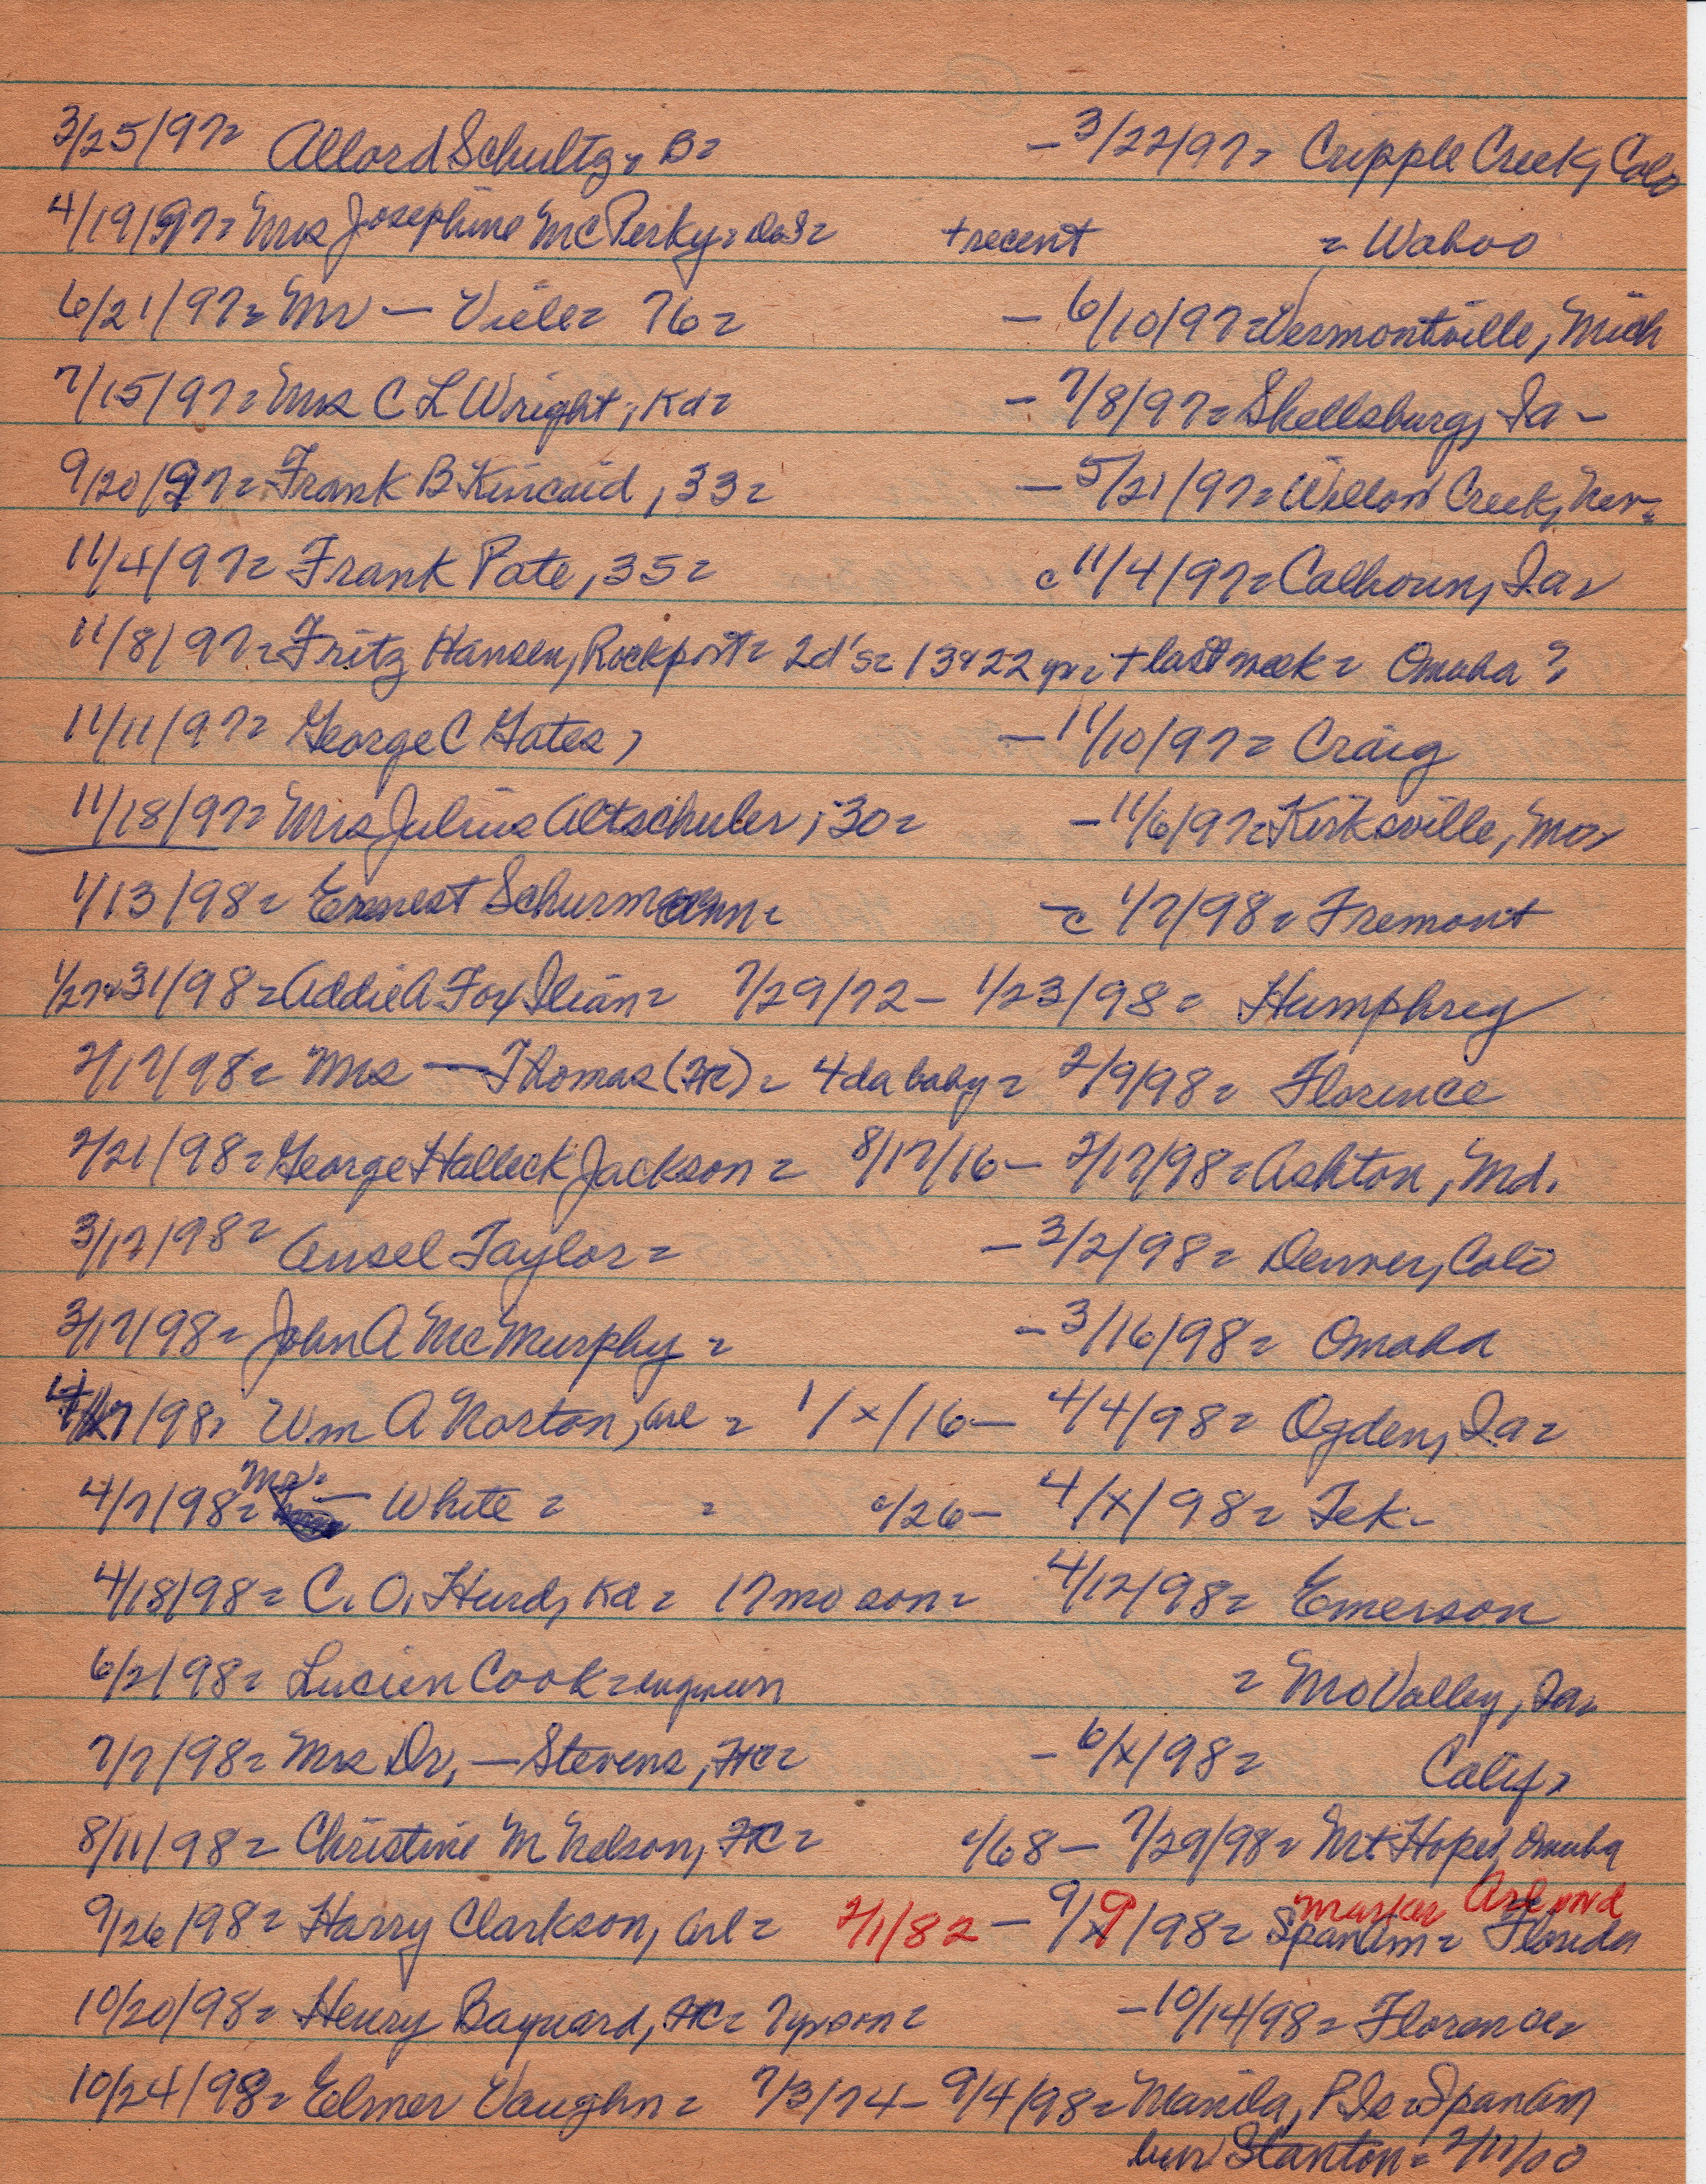 3/25/97= Allord Schultz, B= - 3/22/97= Cripple Creek, Colo
4/19/97= Mrs Josephine McPerky= DaS= + recent = Wahoo
6/21/97= Mr — Viele= 76= - 6/10/97= Vermontville, Mich
7/15/97= Mrs C L Wright, Kd= - 7/8/97= Shellsburg, Ia -
9/20/97= Frank B Kincaid, 33= - 5/21/97= Willow Creek, Nev=
11/4/97= Frank Pate, 35= c 11/4/97= Calhoun, Ia=
11/8/97= Fritz Hansen, Rockport= 2 d's= 13 & 22 yr= + last week= Omaha ?
11/11/97= George C Gates, - 11/10/97= Craig
11/18/97= Mrs Julius Altschuler, 30= - 11/6/97= Kirksville, Mo=
1/13/98= Ernest Schurmann= - c 1/7/98= Fremont
1/27&31/98= Addie A Fox Ilian= 7/29/72 - 1/23/98= Humphrey
2/17/98= Mrs — Thomas (FtC)= 4 da baby= 2/9/98= Florence
2/21/98= George Halleck Jackson= 8/17/16 - 2/17/98= Ashton, Md.
3/17/98= Ansel Taylor= - 3/2/98= Denver, Colo
3/17/98= John A McMurphy= - 3/16/98= Omaha
/98= Wm A Norton, Arl= 1/x/16 - 4/4/98= Ogden, Ia=
4/7/98= Mr. — White= = c/26 - 4/x/98= Tek-
4/18/98= C. O. Hurd, Kd= 17 mo son= 4/12/98= Emerson
6/2/98= Lucien Cook= = Mo Valley, Ia=
7/7/98= Mrs Dr, — Stevens, FtC= - 6/x/98= Calif=
8/11/98= Christine M Nelson, FtC= c/68 - 7/29/98= Mt Hope, Omaha
marker Arl
9/26/98= Harry Clarkson, Arl= 2/1/82 - 9/9/98= SpanAm= Florida
10/20/98= Henry Baynard, FtC= 7 yr son= - 10/14/98= Florence=
10/24/98= Elmer Vaughn= 7/3/74 - 9/4/98= Manila, P Is= SpanAm
bur Stanton=